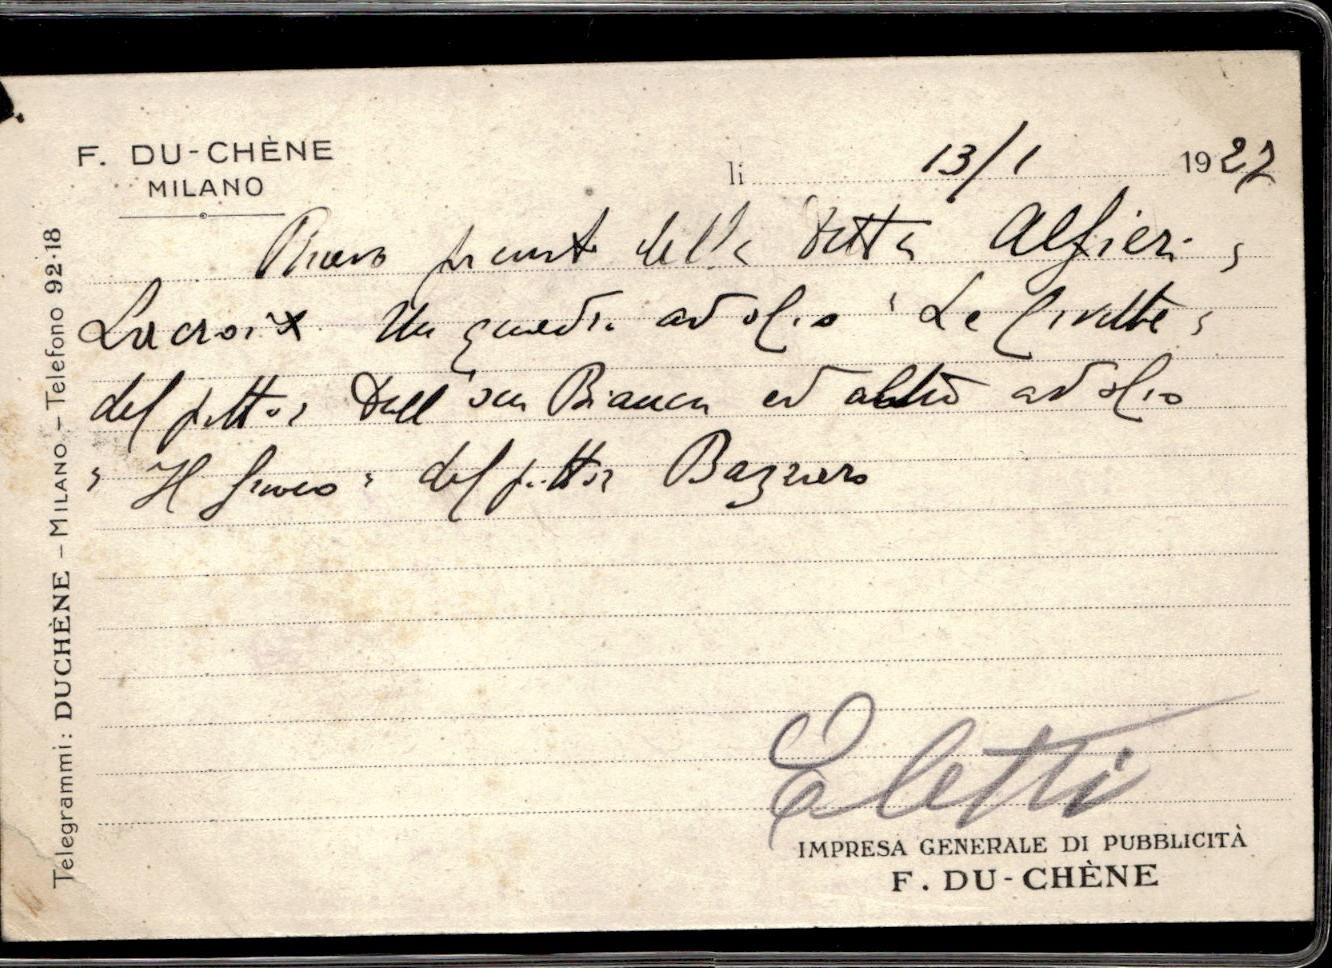 F. DU-CHÈNE
MILANO
li 13/1 1927
Ricevo della Ditta Alfieri,
Lacroix Un quadro ad olio "Le Civette"
del pittor Dall'Oca Bianca ed altro ad olio
"Il fuoco" del pittor Bazzaro
Eletti
IMPRESA GENERALE DI PUBBLICITÀ
F. DU-CHÈNE
Telegrammi: DUCHÈNE – MILANO – Telefono 92-18